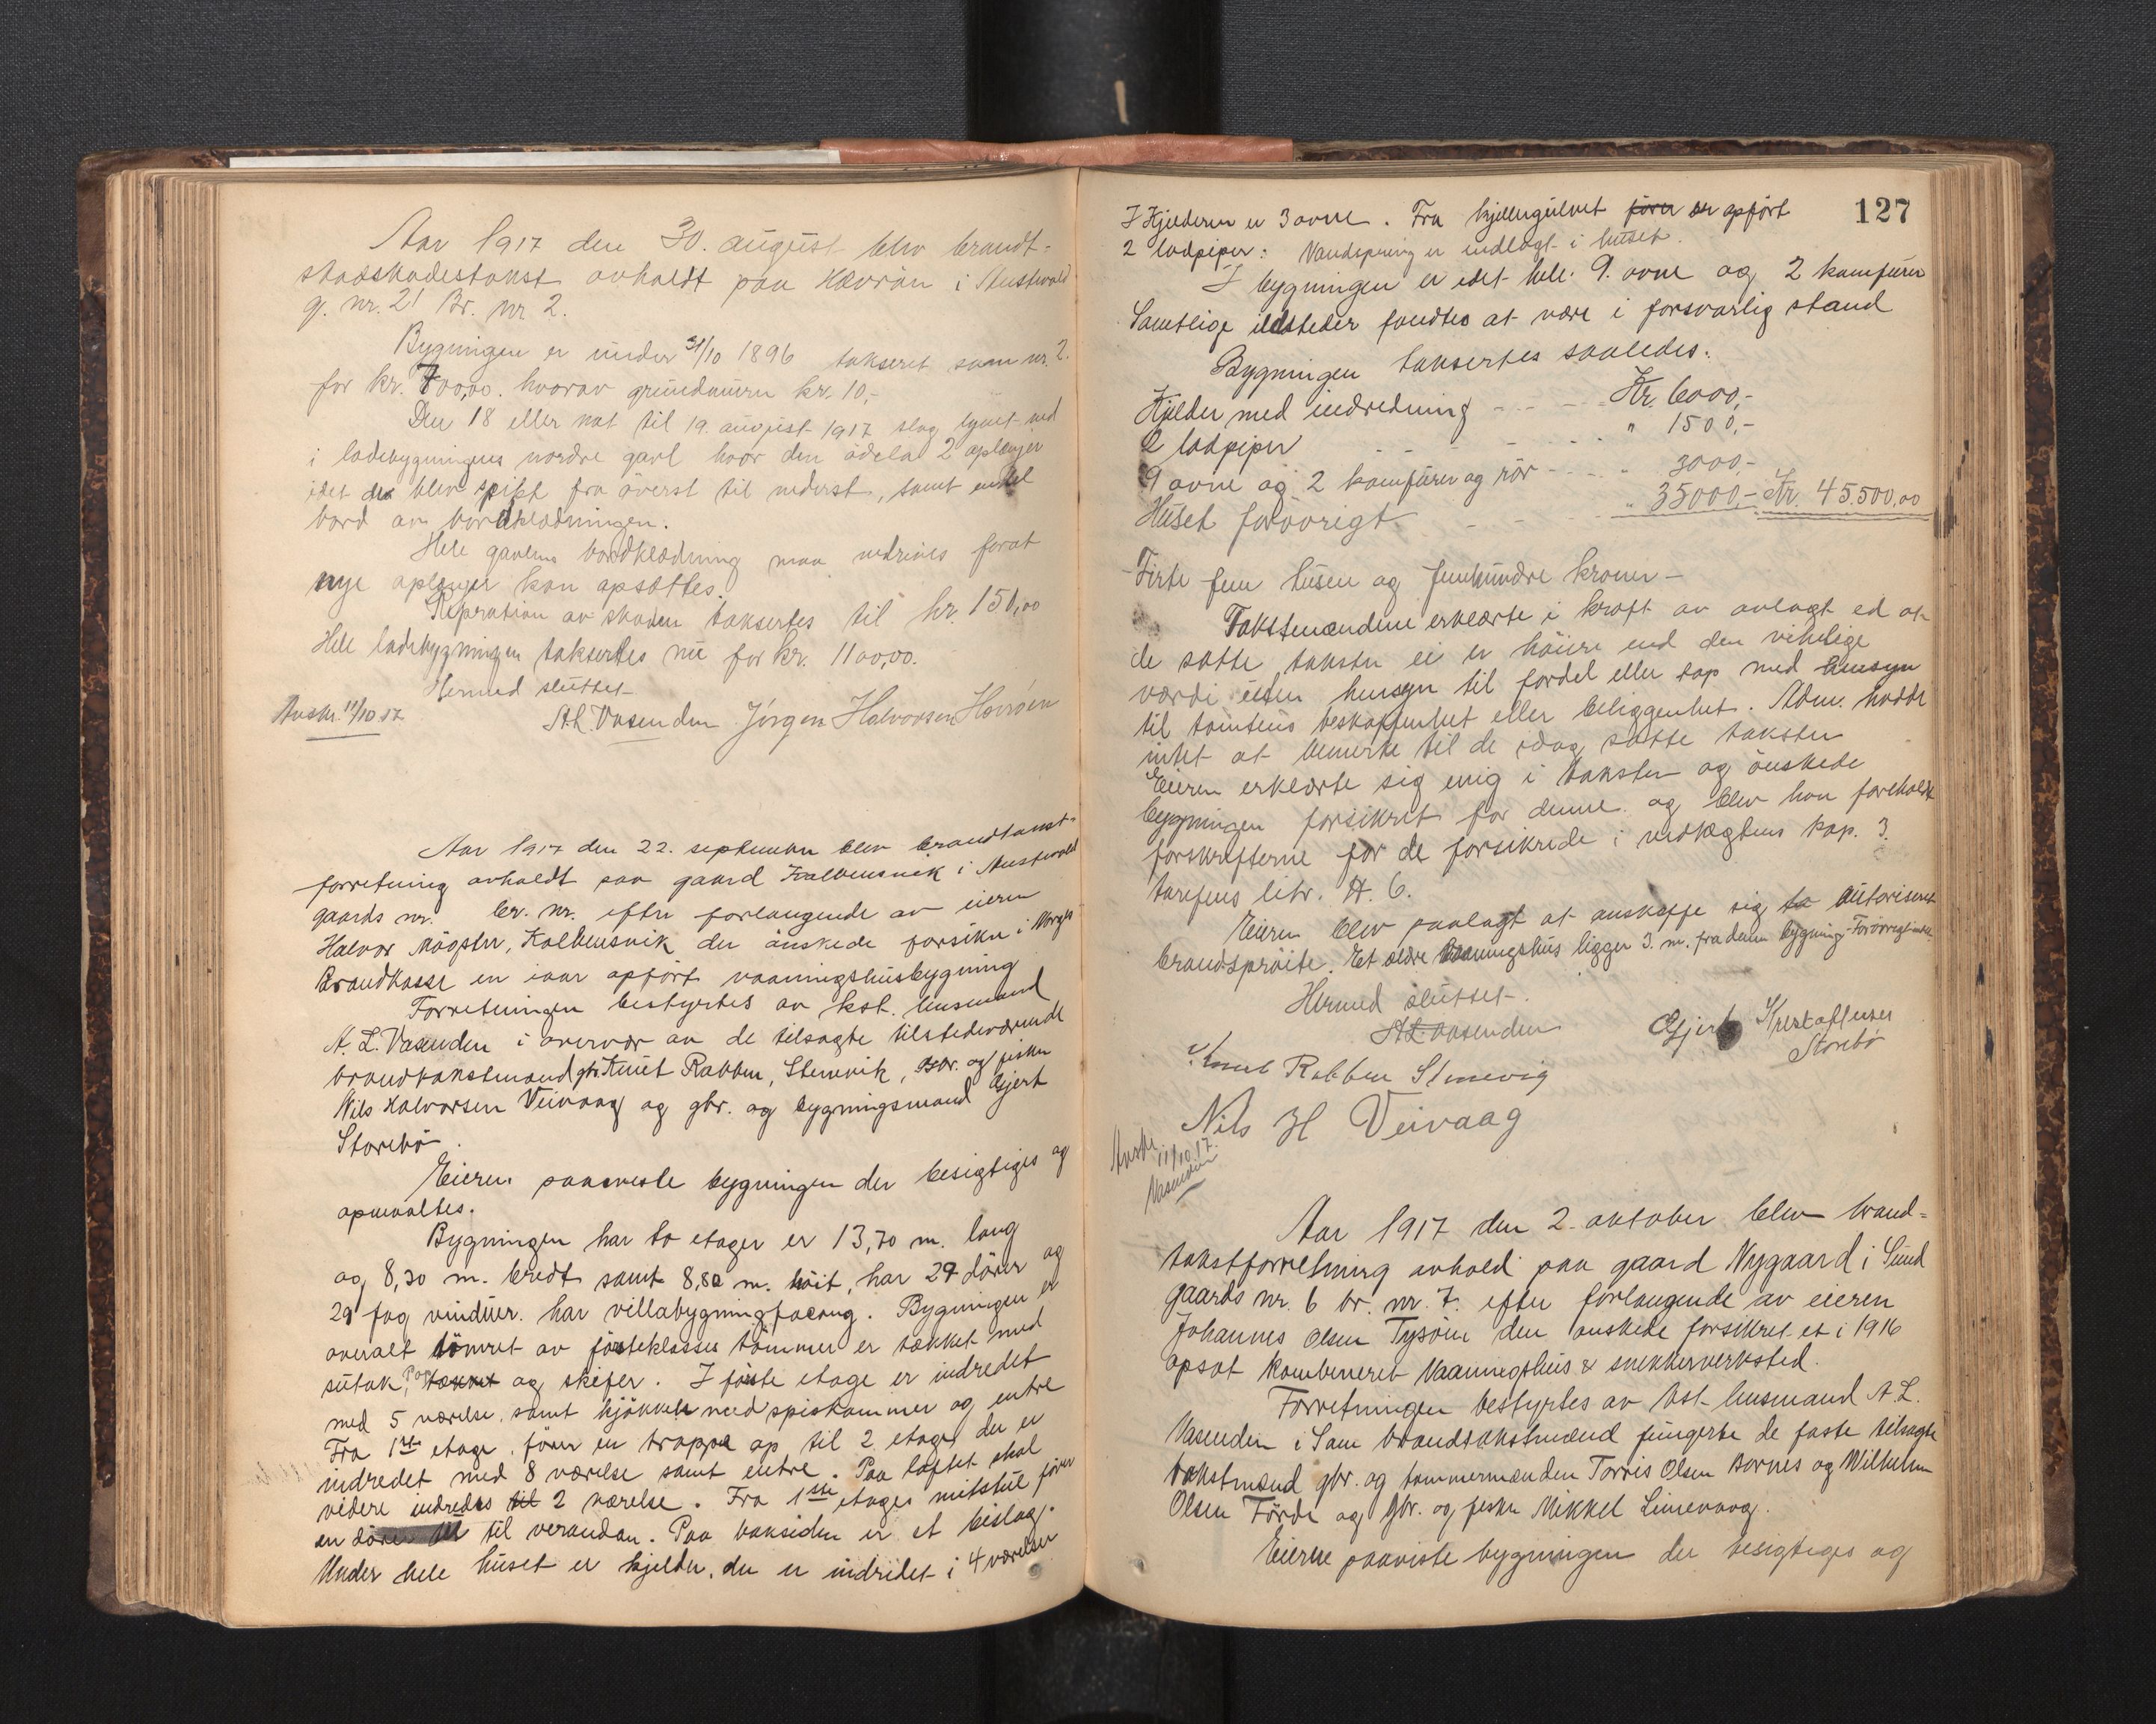 Aar 1917 den 30. august blev brandt-
skadestakst avholdt paa Hævrøen i Austevold
g. nr. 21 Br. nr 2.
Bygningen er under 31/10 1896 takseret som nr. 2.
for kr. 700,00. hvorav grundmuren kr. 10,-
Den 18 eller nat til 19. august 1917 slog lynet ned
i ladebygningens nordre gavl hvor den ödela 2 oplænger
idet de blev splittet fra överst til nederst, samt endel
bord av bordklædningen.
Hele gavlens bordklædning maa nedrives forat
nye oplenger kan opsættes.
Repration av skaden taksertes til kr. 150,00
Hele ladebygningen taksertes nu for kr. 1100,00.
Hermed sluttet
Avskr. 11/10 17 A.L. Vasenden Jörgen Halvorsen Hævröen
Aar 1917 den 22. september blev brandtakst-
forretning avholdt paa gaard Kalbeinsvik i Austevold
gaards nr. br. nr. efter forlangende av eieren
Halvor Møgster, Kolbeinsvik der önskede forsikre i Norges
Brandkasse en iaar opfört vaaningshusbygning
Forretningen bestyrtes av kst. lensmand
A. L. Vasenden i overvær av de tilsagte tilstedeværende
brandtakstmænd gbr. Knut Rabben, Stenevik, Gbr. og fisker
Nils Halvorsen Veivaag og gbr. og bygningsmand Gjert
Storebö.
Eieren paaviste bygningen der besigtiges og
opmaaltes.
Bygningen har to etager er 13,70 m. lang
og 8,30 m. bredt samt 8,80 m. höit, har 29 dörer og
29 fag vinduer. har villabygningfacong. Bygningen er
overalt tömret av försteklasses tömmer er tækket med
sutak, Pap og skifer. I förste etage er indredet
med 5 værelse, samt kjökken med spiskammer og entre
Fra 1ste etage förer en trappe op til 2 etage, der er
indredet med 8 værelse samt entre. Paa loftet skal
videre indredes til 2 værelse. Fra 1ste etages midtstue förer
en döre til verandan. Paa baksiden er et bislag.
Under hele huset er kjelder, der er indredet i 4 værelser
127
I Kjelderen er 3 ovne. Fra kjellergulvet förer er opfört
2 ladpiper: Vandspring er indlagt i huset.
I bygningen er idet hele 9. ovne og 2 komfurer
Samtlige ildsteder fandtes at være i forsvarlig stand
Bygningen taksertes saaledes:
Kjelder med indredning - - - Kr. 6000,-
2 ladpiper - - - " 1500,-
9 ovne og 2 komfurer og rör - - - " 3000-
Huset forövrigt - - - " 35000,- Kr. 45.500,00
- Firte fem tusen og femhundre kroner -
Takstmændene erklærte i kraft av avlagt ed at
de satte takster ei er höiere end den virkelige
værdi uten hensyn til fordel eller tap med hensyn
til tomtens beskaffenhet eller beliggenhet. Adm. hadde
intet at bemerke til de idag satte takster
Eieren erklærte sig enig i taksten og önskede
bygningen forsikret for denne og blev han foreholdt
forskrifterne for de forsikrede i vedtægtens kap. 3
tarefens litr. A. 6.
Eieren blev paalagt at anskaffe sig to autoriseret
brandspröite. Et ældre Vaaningshus ligger 3. m. fra denne bygning. Forövrigt intet.
Hermed sluttet.
A.L. Vasenden Gjert Kristoffersen
Storebö
Knut Rabben Stenevig
Nils H Veivaag
Avskr. 11/10.17.
Vasenden
Aar 1917 den 2. oktober blev brand-
takstforretning avhold paa gaard Nygaard i Sund
gaards nr. 6 br. nr. 7. efter forlangende av eieren
Johannes Olsen Tysöen der önskede forsikret et i 1916
opsat kombineret Vaaningshus & snekkerverksted.
Forretningen bestyrtes av kst. lensmand A. L.
Vasenden i Som brandtakstmænd fungerte de faste tilsagte
takstmænd gbr. og tömmermænden Torris Olsen Bornes og Wilhelm
Olsen Förde og gbr. og fisker Mikkel Limevaag.
Eieren paaviste bygningen der besigtiges og